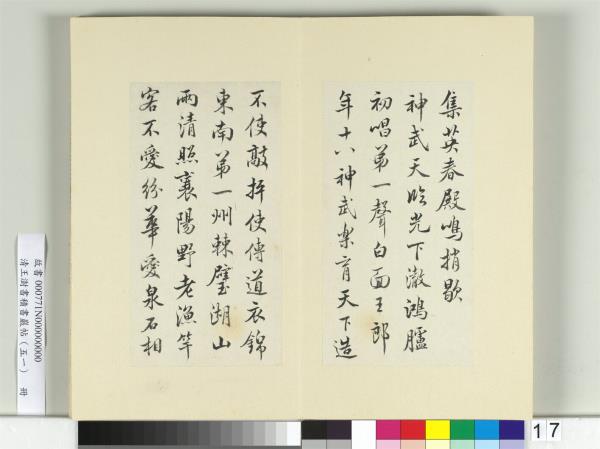 集英春殿鳴捎歇
神武天臨光下澈鴻臚
初唱第一聲白面王郎
年十八神武樂育天下造
不使敲抨使傳道衣錦
東南第一州棘璧湖山
兩清照襄陽野老漁竿
客不愛紛華愛泉石相
故書000771N000000000
清王澍書積書巖帖(五一) 冊
17